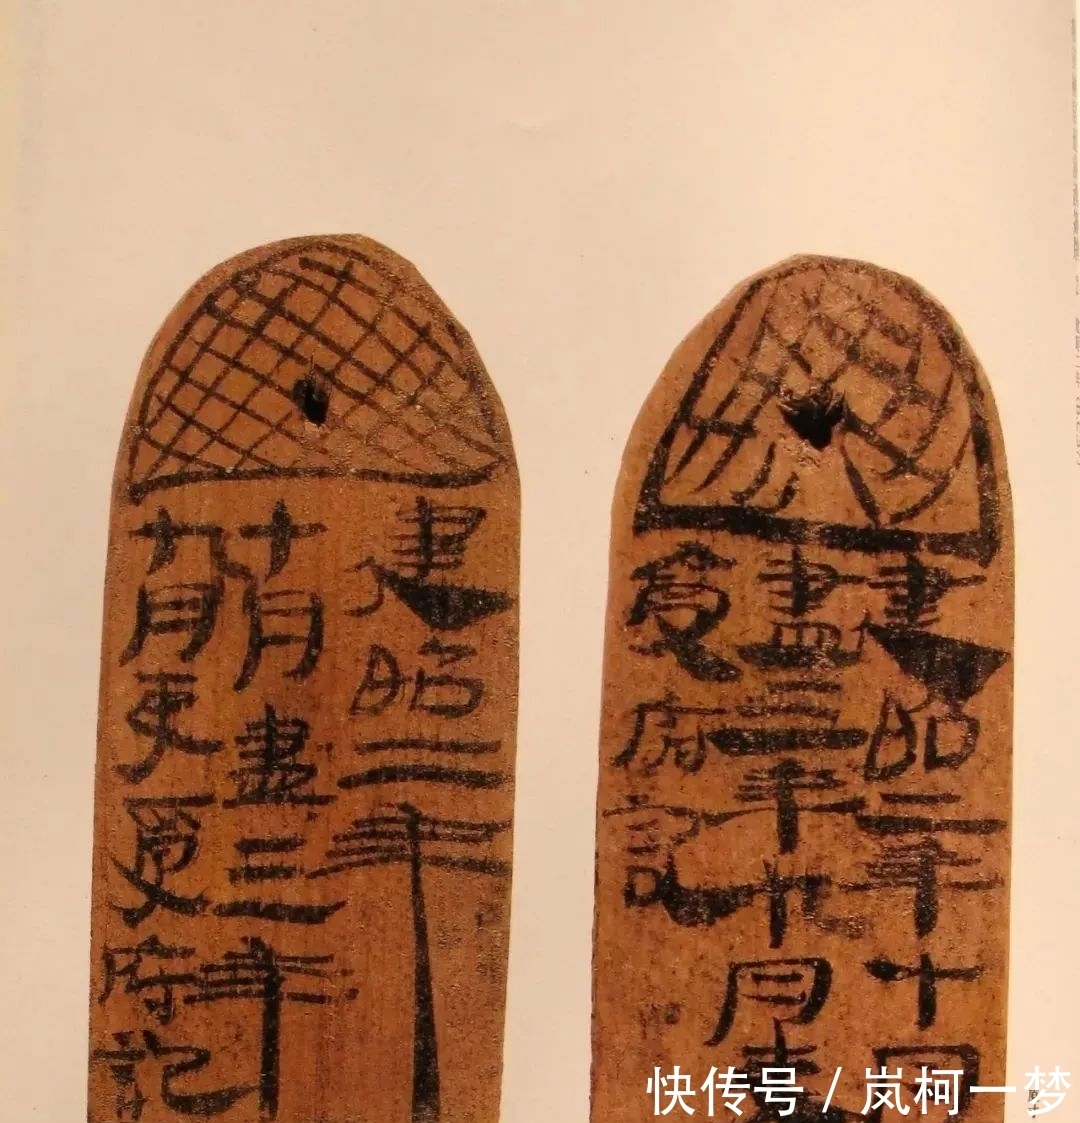 建昭二年
十月盡三年
九月吏受府記
建昭二年十月
盡三年九月
受府記
快传号 / 岚柯一梦